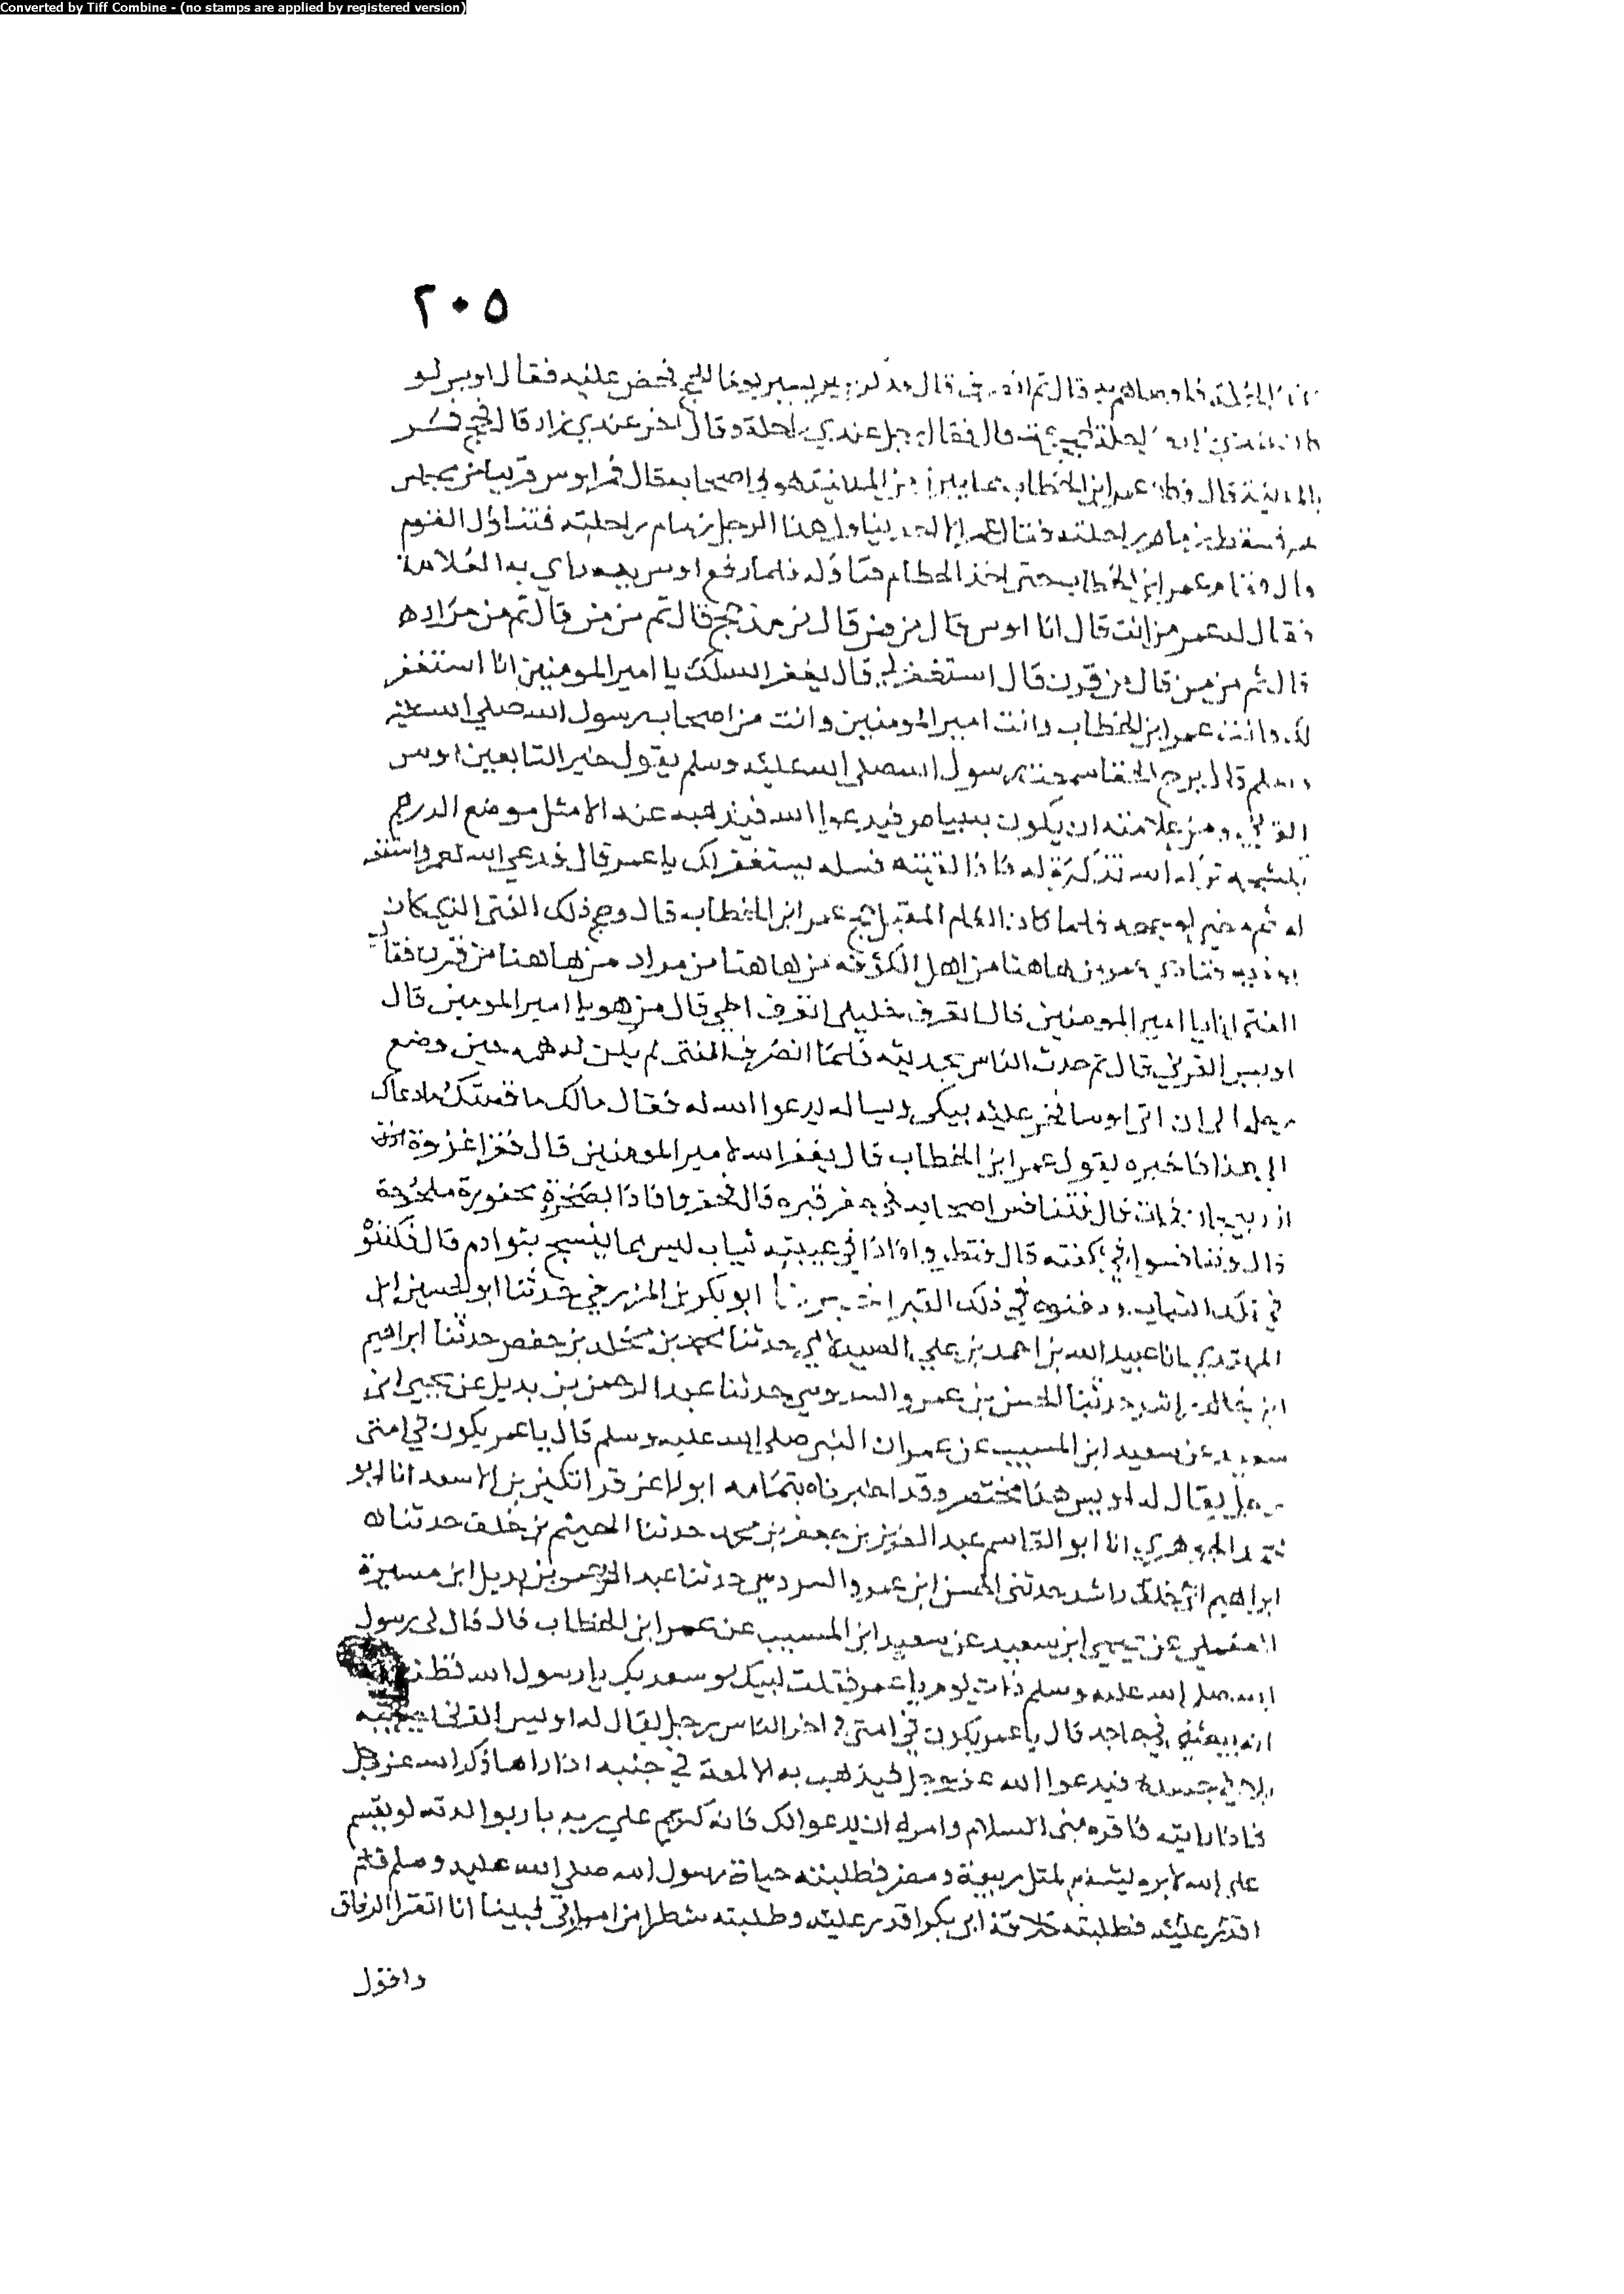 Converted by Tiff Combine - (no stamps are applied by registered version)
٢٠٥
قال ثم قال فحض عليه فقال اويس لو
قال فقال رجل عندي راحلة وقال اخر عندي زاد قال فحج فمر
بالمدينة قال عمر ابن الخطاب المدينة هو في اصحابه فقال فمر اوس قريبا من مجلس
عمر فسقط زمام راحلته فقال عمر ناول هذا الرجل زمام راحلته فتثاقل القوم
قال وقام عمر ابن الخطاب حتى اخذ الخطام فناوله فلما رفع اوس يده راي به العلامة
فقال له عمر من انت قال انا اوس قال من من قال من مذحج قال ثم من من قال ثم من مراد ه
قال ثم من من قال من قرن قال استغفر لي قال يغفر الله لك يا امير المومنين انا استغفر
لك وانت عمر ابن الخطاب وانت امير المومنين وانت من اصحاب رسول الله صلي الله عليه
وسلم قال رسول الله صلي الله عليه وسلم يقول خير التابعين اوس
القرني ومن علامته ان يكون به بياض فيدعوا الله فيذهبه عنه الا مثل موضع الدرهم
تركه الله تذكرة له فاذا لقيته فسله يستغفر لك يا عمر قال فدعي الله لعمر واستغفر
له ثم مضي لوجهه فلما كان العام المقبل حج عمر ابن الخطاب قال وحج ذلك الفتي الذي كان
يوذيه فنادي عمر من هاهنا من اهل الكوفة من هاهنا من مراد من هاهنا من قرن فقال
الفتي انا يا امير المومنين قال اتعرف خليلي اتعرف اخي قال من هو يا امير المومنين قال
اويس القرني قال ثم حدث الناس بحديثه فلما انصرف الفتي لم يكن له هم حين وضع
رحله الي ان اتي اوسا فخر عليه يبكي ويساله يدعوا الله له فقال مالك ما قصتك ما دعاك
الي هذا فاخبره بقول عمر ابن الخطاب قال يغفر الله لامير المومنين قال فغزا غزوة
اذربيجان فمات قال فتنافس اصحابه في حفر قبره قال فحفروا فاذا بصخرة محفورة ملحودة
قال وتنافسوا في كفنه قال فنظروا فاذا في عيبته ثياب ليس مما ينسج بنوا ادم قال فكفنوه
في تلك الثياب ودفنوه في ذلك القبر ابو بكر بن المزرفي حدثنا ابو الحسين ابن
المهتدي انا عبيد الله بن احمد بن علي الصيدلاني حدثنا محمد بن مخلد بن حفص حدثنا ابراهيم
ابن راشد حدثنا الحسن بن عمرو السدوسي حدثنا عبد الرحمن بن بديل عن يحيي ابن
سعيد عن سعيد ابن المسيب عن عمر ان النبي صلي الله عليه وسلم قال يا عمر يكون في امتي
رجل يقال له اويس هذا مختصر وقد اخبرناه بتمامه ابو الاعز قراتكين بن الاسعد انا ابو
محمد الجوهري انا ابو القاسم عبد العزيز بن جعفر بن محمد حدثنا الهيثم بن خلف حدثنا
ابراهيم راشد حدثني الحسن ابن عمرو السدوسي حدثنا عبد الرحمن بن بديل ابن ميسرة
العقيلي عن يحيي ابن سعيد عن سعيد ابن المسيب عن عمر ابن الخطاب قال قال لي رسول
الله صلي الله عليه وسلم ذات يوم يا عمر فقلت لبيك وسعديك يا رسول الله فظننت
انه يبعثني في حاجة قال يا عمر يكون في امتي في اخر الناس رجل يقال له اويس القرني يصيبه
بلا في جسده فيدعوا الله عز وجل فيذهب به الا لمعة في جنبه اذا راها ذكر الله عز وجل
فاذا رايته فاقره مني السلام وامره ان يدعو لك فانه كريم علي ربه بار بوالدته لو يقسم
علي الله لابره يشفع لمثل ربيعة ومضر فطلبته حياة رسول الله صلي الله عليه وسلم فلم
اقدر عليه فطلبته خلافة ابي بكر اقدر عليه وطلبته شطرا من امارتي فبينا انا اتقرا الرفاق
واقول